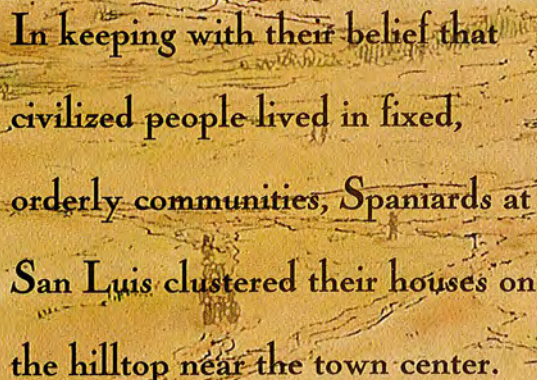 In keeping with their belief that
civilized people lived in fixed,
orderly communities, Spaniards at
San Luis clustered their houses on
the hilltop near the town center.